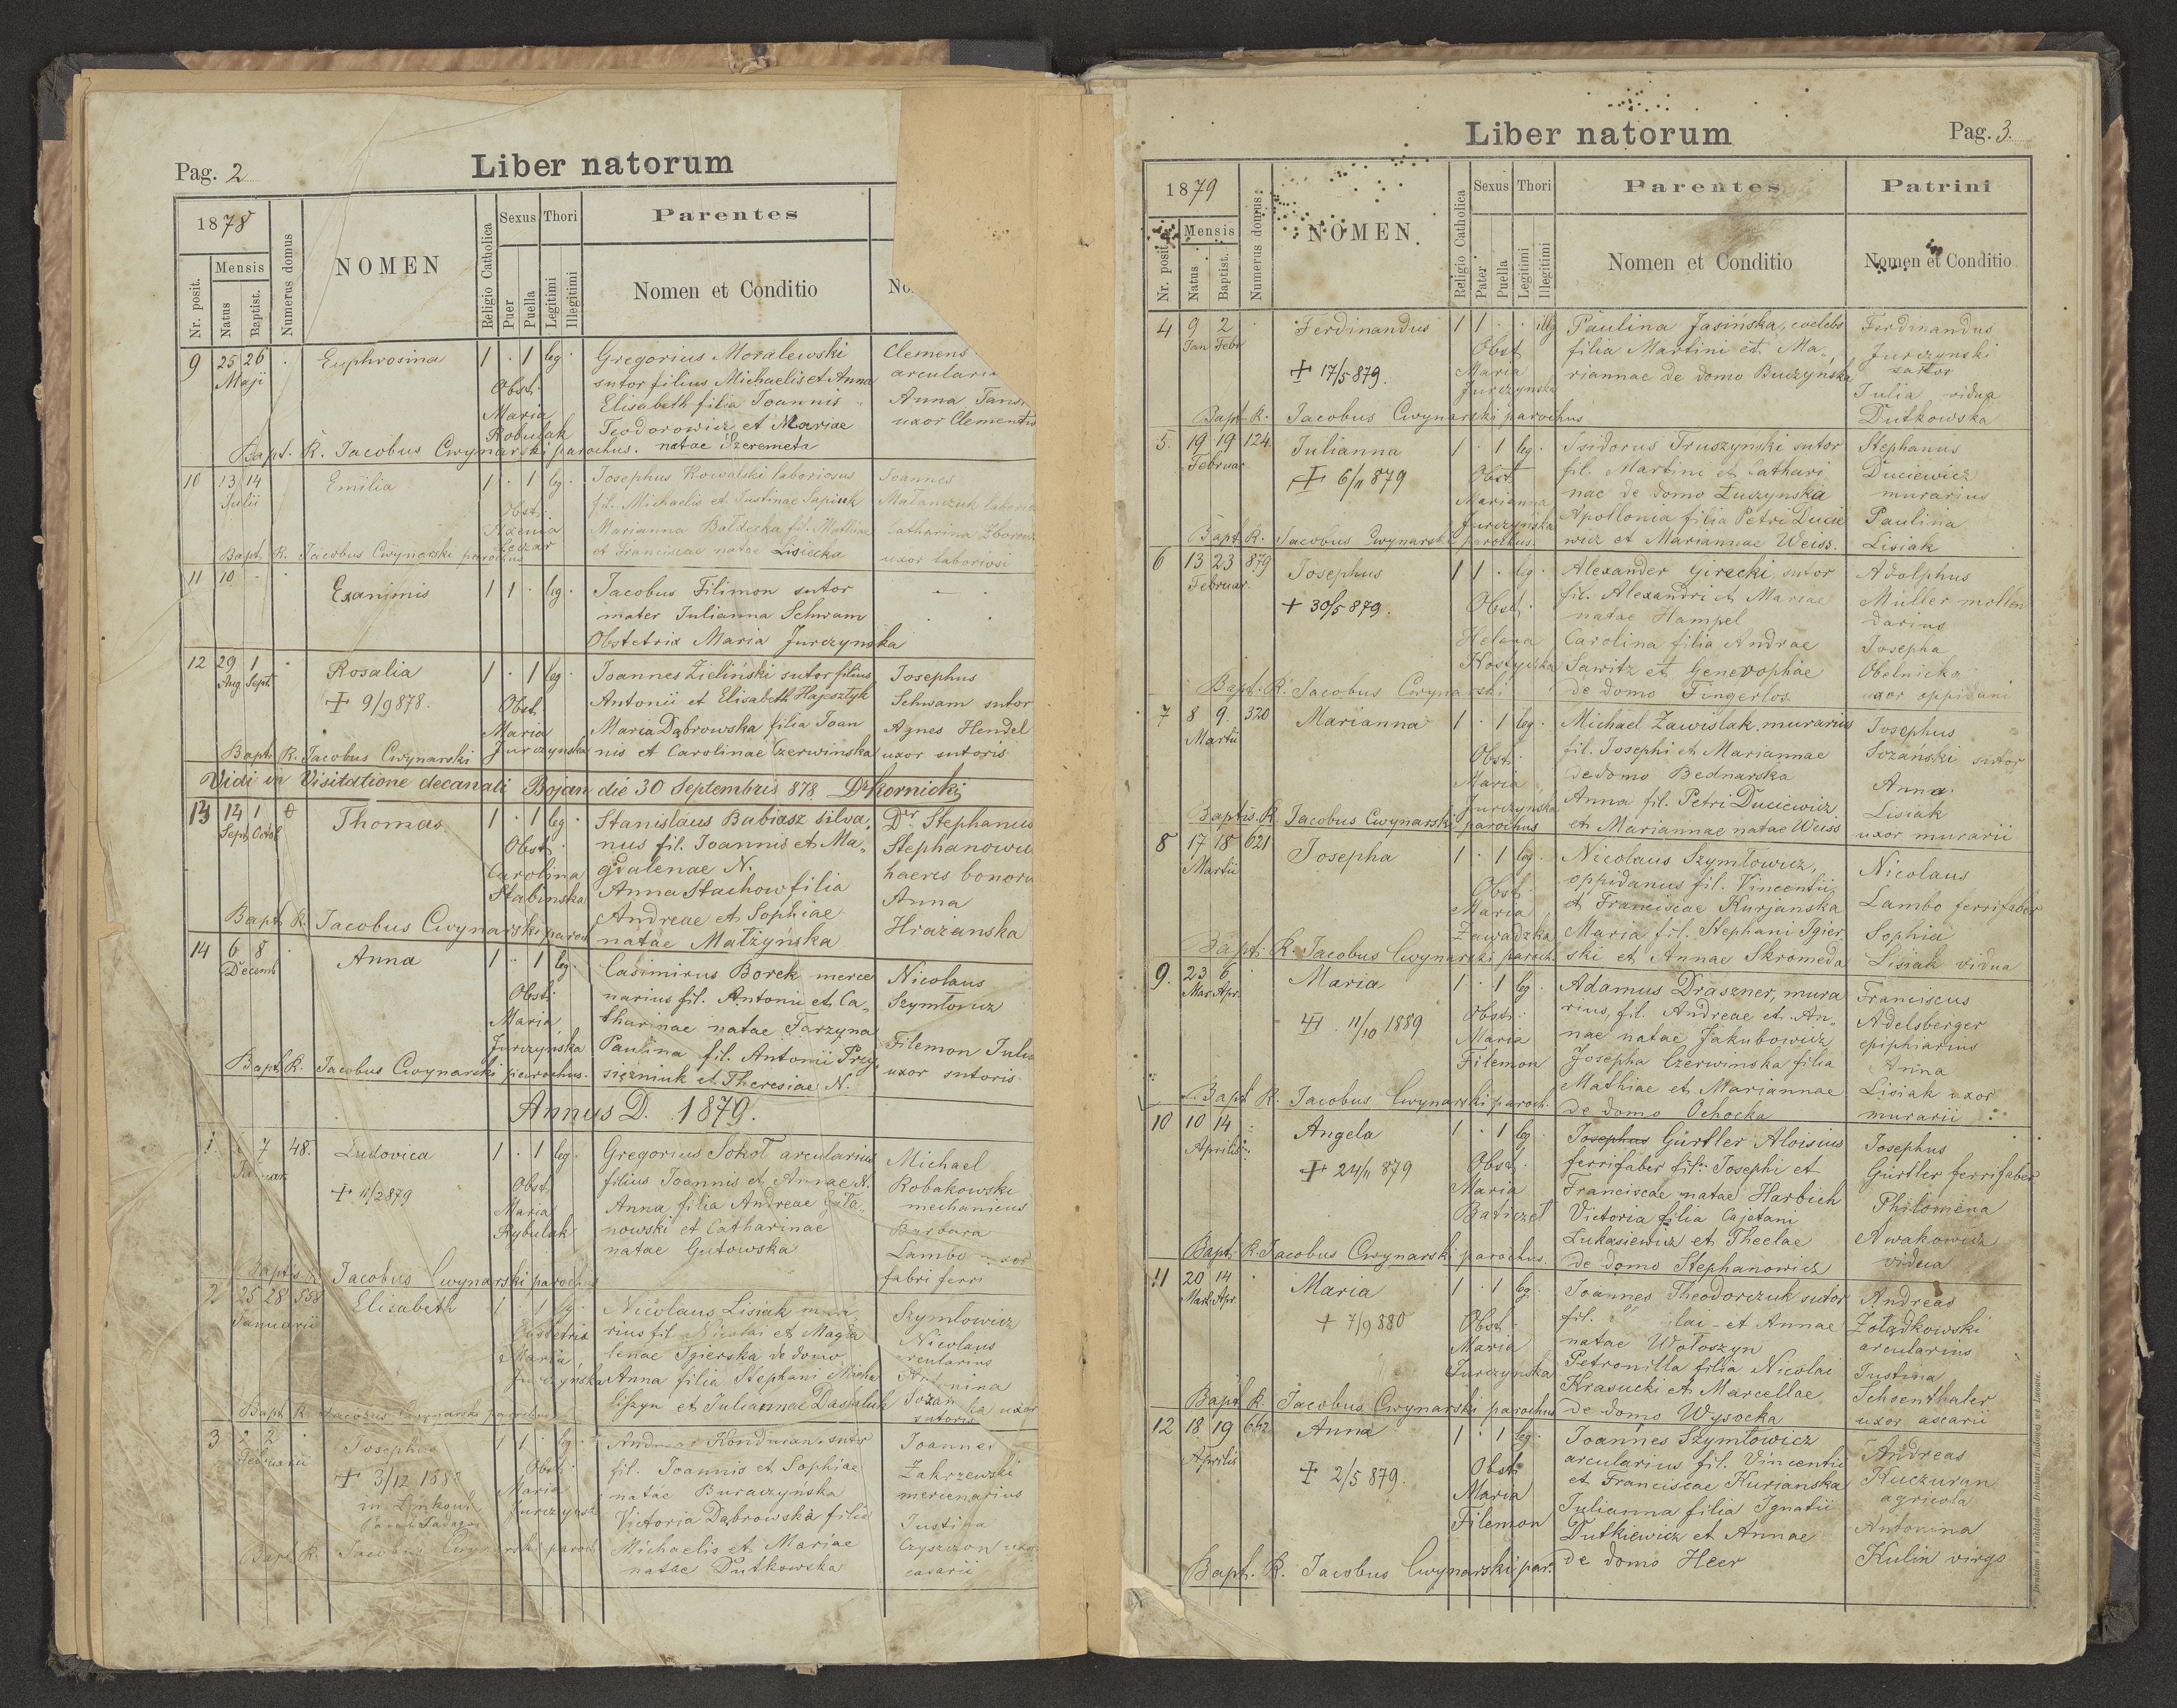 Pag. 2
Liber natorum
1878
Nr. posit.
Mensis
Natus
Baptist.
Numerus domus
NOMEN
Religio Catholica
Sexus
Puer
Puella
Thori
Legitimi
Illegitimi
Parentes
Nomen et Conditio
No
9 25 26 Euphrosina 1 · 1 leg. Gregorius Moralewski Clemens
Maji Obst. sutor filius Michaelis et Anna
Maria Elisabeth filia Joannis Anna
Robulak Teodorowicz et Mariae uxor Clementis
Bapt. R. Jacobus Cwynarski parochus. natae Szeremeta
10 13 14 Emilia 1 · 1 leg. Josephus Kowalski laboriosus Joannes
Julii Obst. fil. Michaelis et Justinae Sapiuk Matanczuk
Axenia Marianna Bałdecka fil. Mathiae Catharina
Bapt. R. Jacobus Cwynarski parochus et Franciscae natae Lisiecka uxor laboriosi
11 10 Exanimis 1 1 · leg. Jacobus Filimon sutor
mater Julianna Schwam
Obstetrix Maria Jurczynska
12 29 1 Rosalia 1 · 1 leg. Joannes Zieliński sutor filius Josephus
Aug Sept + 9/9 878. Obst. Antonii et Elisabeth Hajesztyk Schwam sutor
Maria Maria Dąbrowska filia Joan Agnes Hendel
Bapt. R. Jacobus Cwynarski Jurczynska nis et Carolinae Czerwinska uxor sutoris
Vidi in Visitatione decanali Bojan die 30 Septembris 878 Dr Kornicki
13 14 1 Thomas 1 · 1 leg. Stanislaus Babiasz silva Dr Stephanus
Sept Octob Obst. nus fil. Joannis et Ma
Carolina gdalenae N. haeres
Stabinska Anna Stachow filia Anna
Bapt. R. Jacobus Cwynarski paroch Andreae et Sophiae Hrazanska
natae Małzyńska
14 6 8 Anna 1 · 1 leg. Casimirus Borek merce Nicolaus
Decemb Obst. narius fil. Antonii et Ca Szymłowicz
Maria tharinae natae Tarzyna
Jurczyńska Paulina fil. Antonii Przy Filemon
Bapt. R. Jacobus Cwynarski parochus. siężniuk et Theresiae N. uxor sutoris
Annus D. 1879.
1. 7 48. Ludovica 1 · 1 leg. Gregorius Sokoł arcularius Michael
+ 11/2 879 Obst. filius Joannis et Annae N. Robakowski
Maria Anna filia Andreae mechanicus
Rybulak nowski et Catharinae Barbara
natae Gutowska Lambo
Jacobus Cwynarski parochus fabri ferri
2 25 28 558 Elisabeth 1 · 1 leg. Nicolaus Lisiak Szymlowicz
Januarii Obstetrix rius fil. Nicolai et Magda Nicolaus
Maria lenae Igierska de domo
Jurczynska Anna filia Stephani
Bapt. R. Jacobus Cwynarski parochus et Juliannae uxor
sutoris
3 2 2 Josephus 1 1 · leg. Kondman sutor Joannes
Februarii + 3/12 Obst. fil. Joannis et Sophiae Zakrzewski
Maria natae Buraczynska mercenarius
Victoria Dąbrowska filia Justina
Bapt. R. Jacobus paroch Michaelis et Mariae
natae Dutkowska
Liber natorum
Pag. 3.
1879
Nr. posit.
Mensis
Natus
Baptist.
Numerus domus
NOMEN.
Religio Catholica
Sexus
Pater
Puella
Thori
Legitimi
Illegitimi
Parentes
Nomen et Conditio
Patrini
Nomen et Conditio
4 9 2 Ferdinandus 1 1 · · illg Paulina Jasińska, coelebs Ferdinandus
Jan Febr Obst filia Martini et Ma Jurczynski
+ 17/5 879. Maria riannae de domo Buczynska sartor
Jurczynska Julia vidua
Bapt. R. Jacobus Cwynarski parochus Dutkowska
5. 19 19 124. Julianna 1 · 1 leg. Isidorus Truszynski sutor Stephanus
Februar Obst. fil. Martini et Cathari Duciewicz
+ 6/11 879 Marianna nae de domo Łuszynska murarius
Jurczynska Apollonia filia Petri Ducie Paulina
Bapt. R. Jacobus Cwynarski parochus. wicz et Mariannae Weiss. Lisiak
6 13 23 879 Josephus 1 1 · leg. Alexander Girecki, sutor Adolphus
Februar. Obst. fil. Alexandri et Mariae Müller molen
+ 30/5 879. natae Hampel darius
Helena Carolina filia Andrae Josepha
Kostynska Sawitz et Genevophae Obelnicka
Bapt. R. Jacobus Cwynarski de domo Fingerlos uxor oppidani
7 8 9. 320 Marianna 1 · 1 leg. Michael Zawislak murarius Josephus
Martii Obst. fil. Josephi et Mariannae Sozański sutor
Maria de domo Bednarska Anna
Jurczyńska Anna fil. Petri Duciewicz Lisiak
Baptis. R. Jacobus Cwynarski parochus et Mariannae natae Weiss uxor murarii
8 17 18 621 Josepha 1 · 1 leg. Nicolaus Szymłowicz, Nicolaus
Martii Obst. oppidanus fil. Vincentii Lambo ferrifaber
Maria et Franciscae Kurjanska Sophia
Zawadzka Maria fil. Stephani Igier Lisiak vidua
Bapt. R. Jacobus Cwynarski paroch. ski et Annae Skromeda
9. 23 6 Maria 1 · 1 leg. Adamus Draszner, mura Franciscus
Mar. Apr. Obst. rius, fil. Andreae et An Adelsberger
11/10 1889 Maria nae natae Jakubowicz ephiphiarius
Filemon Josepha Czerwinska filia Anna
Bapt R. Jacobus Cwynarski paroch. Mathiae et Mariannae Lisiak uxor
de domo Ochocka murarii
10 10 14 Angela 1 · 1 leg. Josephus Gürtler Aloisius Josephus
Aprilis Obst. ferrifaber fil. Josephi et Gürtler ferrifaber
+ 24/11 879 Maria Franciscae natae Harbich Philomena
Baticzel Victoria filia Cajetani Awakowicz
Lukasiewicz et Theclae vidua
Bapt. R. Jacobus Cwynarski parochus. de domo Stephanowicz
11 20 14 Maria 1 · 1 leg. Joannes Theodorczuk sutor Andreas
Mart. Apr. Obst. fil. lai et Annae Żołądkowski
+ 7/9 880 Maria natae Wołoszyn arcularius
Jurczynska Petronilla filia Nicolai Justina
Krasucki et Marcellae Schoenthaler
Bapt R. Jacobus Cwynarski parochus de domo Wysocka uxor ascarii
12 18 19 662 Anna 1 · 1 leg. Joannes Szymłowicz Andreas
Aprilis Obst. arcularius fil. Vincentii Kuczuran
+ 2/5 879. Maria et Franciscae Kurianska agricola
Filemon Julianna filia Ignatii Antonina
Dutkiewicz et Annae Kulin virgo
Bapt. R. Jacobus Cwynarski par. de domo Heer